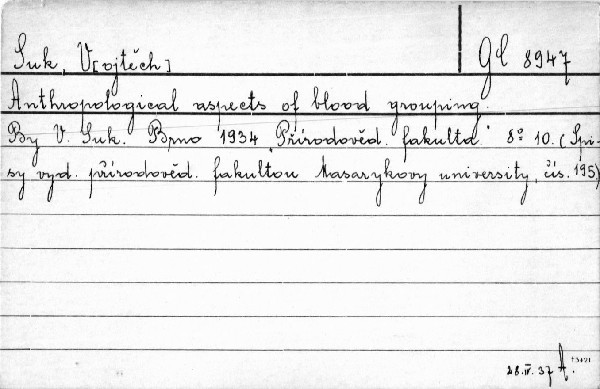 Suk, V[ojtěch] Gl 8947
Anthropological aspects of blood grouping.
By V. Suk. Brno 1934. Přírodověd. fakulta. 8° 10. (Spi-
sy vyd. přírodověd. fakultou Masarykovy university, čís. 195)
28.IV.37 A.